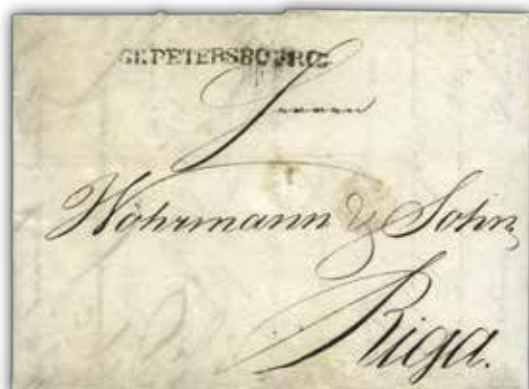 ST.PETERSBOURG
Herren
Wöhrmann & Sohn,
Riga.